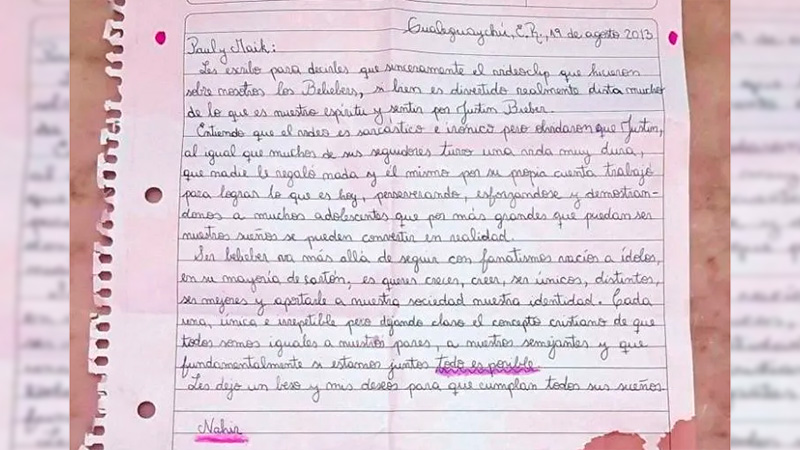 Gualeguaychú, E.R., 19 de agosto 2013
Paul y Maik:
Les escribo para decirles que sinceramente el videoclip que hicieron
sobre nosotros los Beliebers, si bien es divertido realmente dista mucho
de lo que es nuestro espíritu y sentir por Justin Bieber.
Entiendo que el video es sarcástico e irónico pero olvidaron que Justin,
al igual que muchos de sus seguidores tuvo una vida muy dura,
que nadie le regaló nada y él mismo por su propia cuenta trabajó
para lograr lo que es hoy, perseverando, esforzandose y demostran-
donos a muchos adolescentes que por más grandes que puedan ser
nuestros sueños se pueden convertir en realidad.
Ser belieber va más allá de seguir con fanatismos vacíos a ídolos,
en su mayoría de cartón, es querer crecer, creer, ser únicos, distintos,
ser mejores y aportarle a nuestra sociedad nuestra identidad. Cada
una, única e irrepetible pero dejando claro el concepto cristiano de que
todos somos iguales a nuestros pares, a nuestros semejantes y que
fundamentalmente si estamos juntos todo es posible.
Les dejo un beso y mis deseos para que cumplan todos sus sueños
Nahir